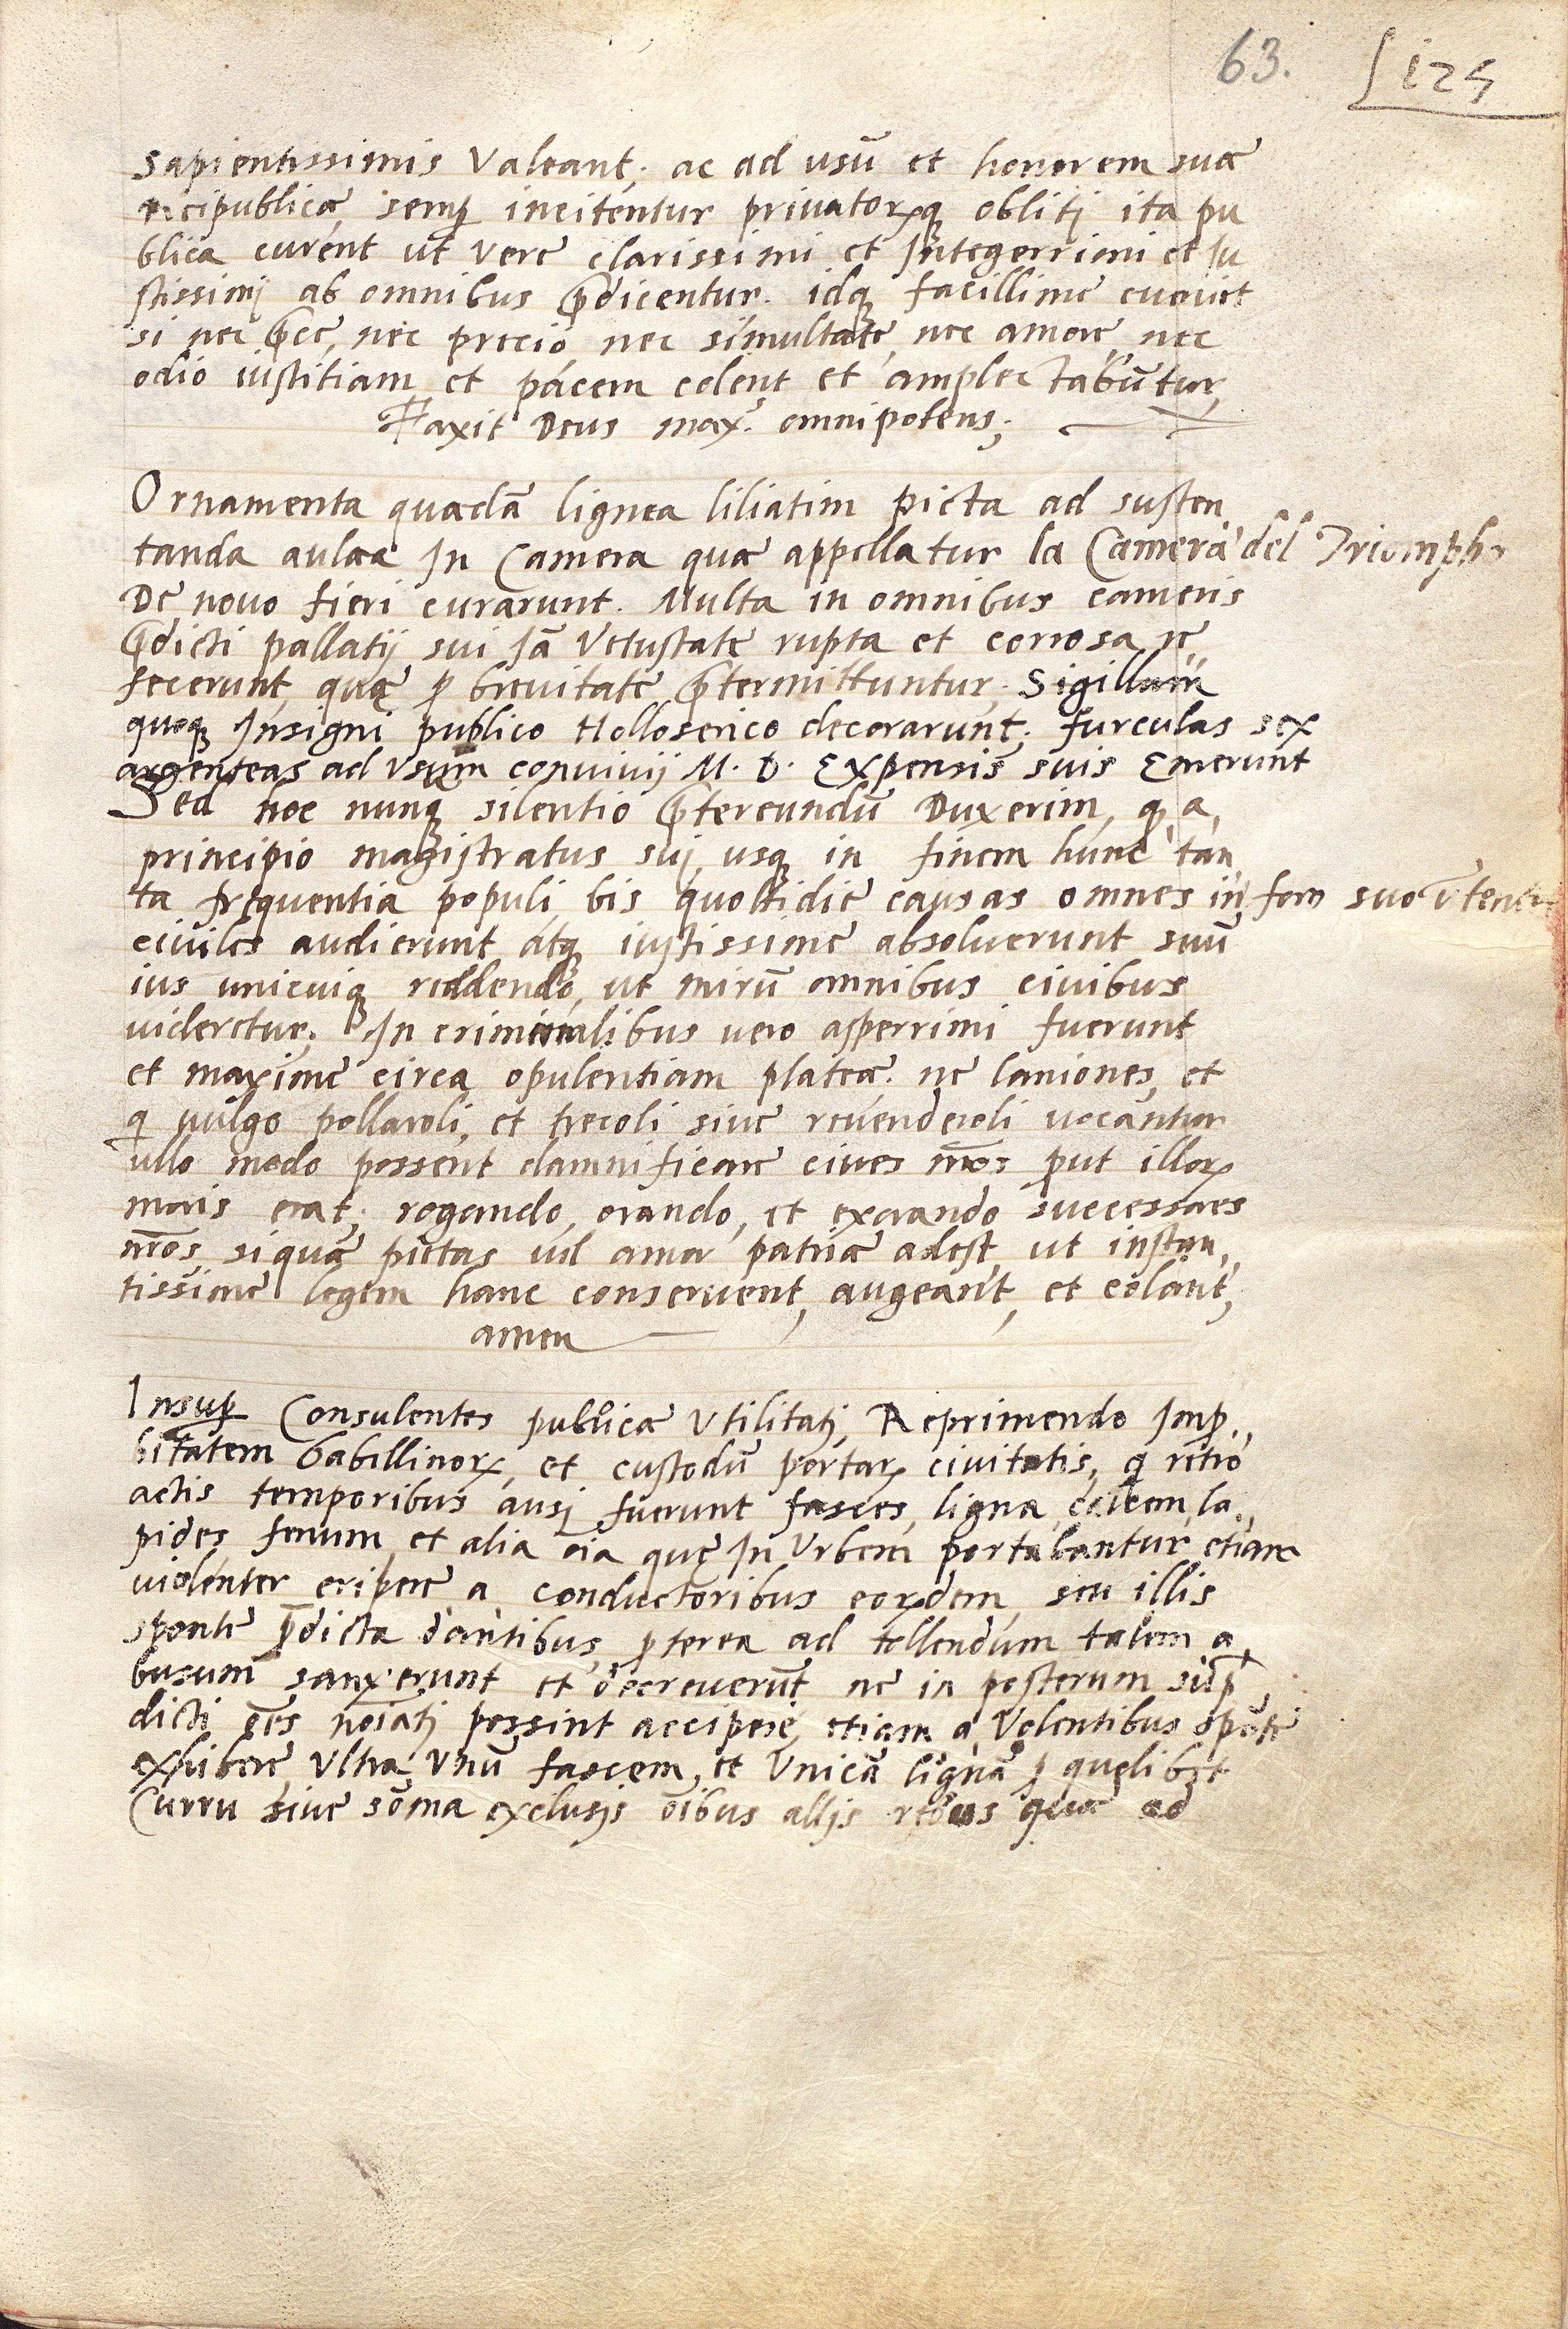 63. 125
sapientissimis valeant; ac ad usũ et honorem suæ
reipublicæ semꝑ incitentur privatorꝝqꝫ obliti ita pu
blica curent ut vere clarissimi et Integerrimi et Iu
stissimj ab omnibus p̃dicentur. idqꝫ facillime eveniet
si nec p̃ce, nec precio nec simultate, nec amore nec
odio iustitiam et pacem colent et amplectabũtur,
Faxit Deus max. omnipotens;
Ornamenta quædã lignea liliatim picta ad susten
tanda aulæa In Camera quæ appellatur la Camera del Triompho
De novo fieri curarunt. Multa in omnibus cameris
p̃dicti pallatij sui Iã Vetustate rupta et corrosa re
fecerunt, quæ ꝓ brevitate p̃termittuntur. Sigillum
quoqꝫ Insigni publico Holloserico decorarunt. furculas sex
argenteas ad Vsum convivij M. D. Expensis suis Emerunt
Sed hoc nunqꝫ silentio p̃tereundũ Duxerim, q, a,
principio magistratus sui usqꝫ in finem hunc tan
ta frequentia populi bis quottidie causas omnes in foro suo
civiles audierunt atqꝫ iustissime absolverunt suũ
ius unicuiqꝫ reddendo, ut mirũ omnibus civibus
videretur. In criminalibus vero asperrimi fuerunt
et maxime circa opulentiam plateæ. ne laniones, et
q vulgo pollaroli, et trecoli sive revenderoli vocantur
ullo modo possent damnificare cives nr̃os ꝓut illorꝝ
moris erat; rogando, orando, et exorando successores
nr̃os, siqua pietas vel amor patriæ adest, ut instan,
tissime legem hanc conservent, augeant, et colant,
amen
Insuꝑ Consulentes publicæ Vtilitatj, Reprimendo Imꝓ.,
bitatem Gabillinorꝝ, et custodũ portarꝝ civitatis, q retro
actis temporibus ausj fuerunt fasces, ligna, calcem, la.,
pides, fenum, et alia oĩa que In Vrbem portabantur, etiam
violenter eripere a conductoribus eorꝝdem, seu illis
sponte p̃dicta dantibus, ꝓterea ad tollendum talem a,
busum sanxerunt et decreverũt ne in posterum sup̃
dicti oẽs noĩatj possint accipere, etiam a Volentibus spõte
exhibere, Vltra Vnũ fascem, et Vnicã lignã ꝑ quolibet
Curru sive soma exclusis oĩbus alijs rebus quæ ad